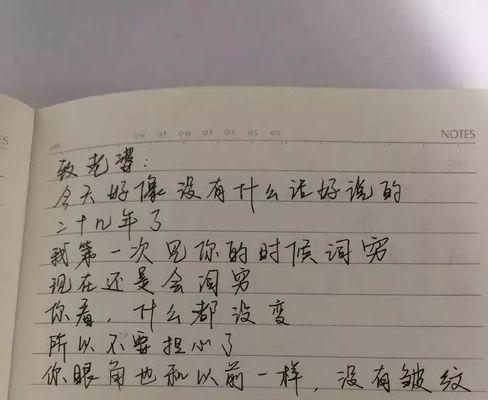 NOTES
致老婆：
今天好像没有什么话好说的
二十九年了
我第一次见你的时候词穷
现在还是会词穷
你看，什么都没变
所以不要担心了
你眼角也和以前一样，没有皱纹